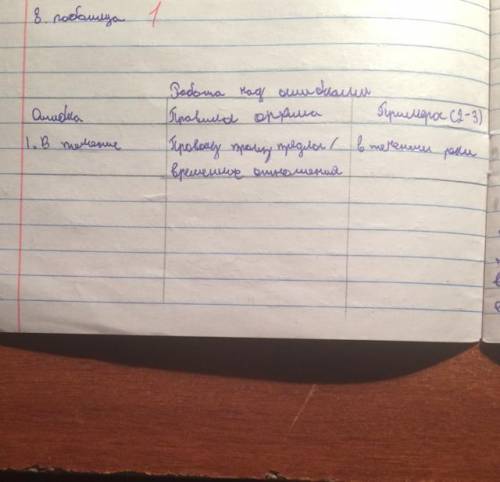 8. таблица 1
Работа над ошибками
Ошибка Правила орфма Примеры (2-3)
1. В течение Производ предлог/ в течении реки
временные отношения